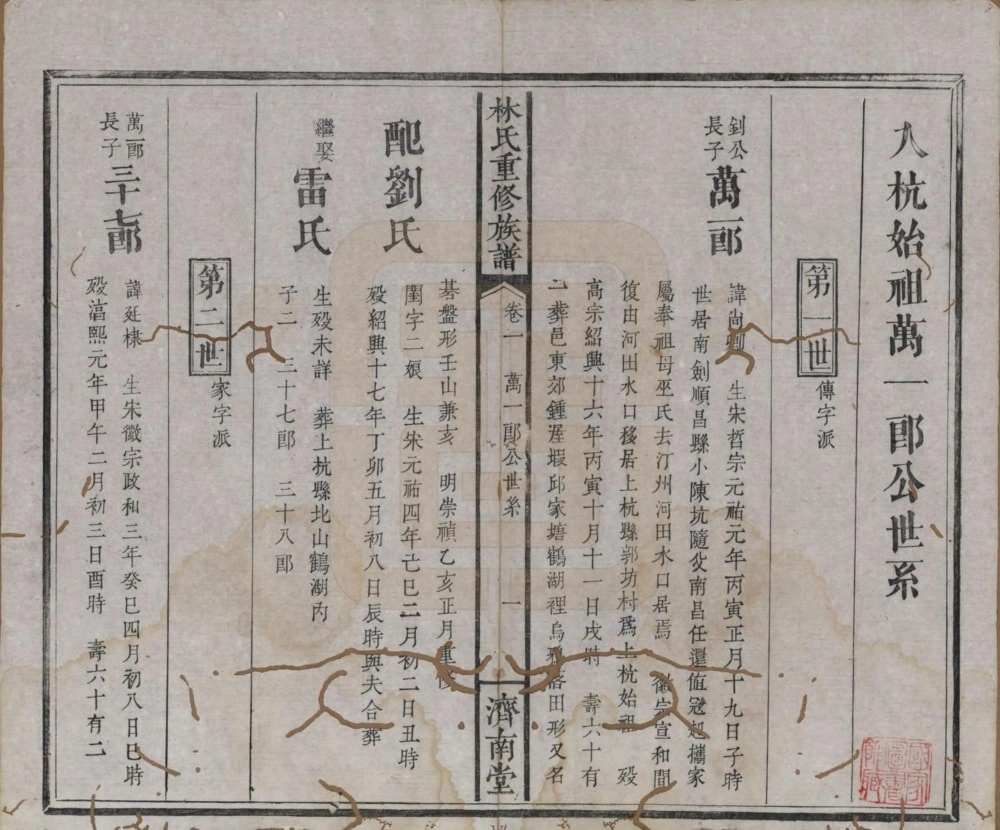 入杭始祖萬一郎公世系
第一世
傳字派
釗公長子
萬一郎
諱尚 生宋哲宗元祐元年丙寅正月十九日子時
世居南劍順昌縣小陳坑隨父南昌任還值寇起攜家
屬奉祖母巫氏去汀州河田水口居焉 徽宗宣和間
復由河田水口移居上杭縣郭坊村爲上杭始祖 殁
高宗紹興十六年丙寅十月十一日戌時 壽六十有
一葬邑東郊鍾屋塅邱家塘鶴湖裡烏鴉落田形又名
林氏重修族譜
卷一 萬一郎公世系 一
濟南堂
棊盤形壬山兼亥 明崇禎乙亥正月重修
配劉氏
閨字二娘 生宋元祐四年己巳二月初二日丑時
殁紹興十七年丁卯五月初八日辰時與夫合葬
繼娶
雷氏
生殁未詳 葬上杭縣北山鶴湖內
子二 三十七郎 三十八郎
第二世
家字派
萬一郎長子
三十七郎
諱廷棣 生宋徽宗政和三年癸巳四月初八日巳時
殁淳熙元年甲午二月初三日酉時 壽六十有二